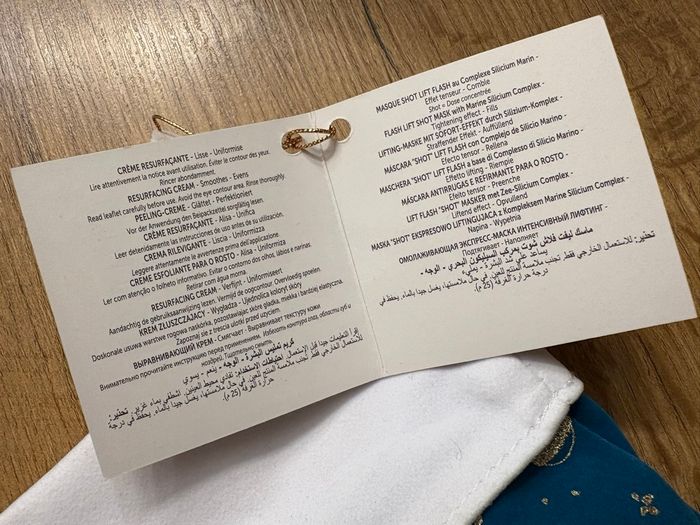 CRÈME RESURFAÇANTE - Lisse - Uniformise
Lire attentivement la notice avant utilisation. Éviter le contour des yeux.
Rincer abondamment.
RESURFACING CREAM - Smoothes - Evens
Read leaflet carefully before use. Avoid the eye contour area. Rinse thoroughly.
PEELING-CREME - Glättet - Perfektioniert
Vor der Anwendung den Beipackzettel sorgfältig lesen.
CRÈME RESURFAÇANTE - Alisa - Unifica
Leer detenidamente las instrucciones de uso antes de su utilización.
CREMA RILEVIGANTE - Liscia - Uniformizza
Leggere attentamente le avvertenze prima dell'applicazione.
CREME ESFOLIANTE PARA O ROSTO - Alisa - Unifica
Ler com atenção o folheto informativo. Evitar o contorno dos olhos, lábios e narinas.
Retirar com água morna.
RESURFACING CREAM - Verfijnt - Uniformiseert
Aandachtig de gebruiksaanwijzing lezen. Vermijd de oogcontour. Overvloedig spoelen.
KREM ZŁUSZCZAJĄCY - Wygładza - Ujednolica koloryt skóry
Doskonale usuwa warstwę rogową naskórka, pozostawiając skórę gładką, miękką i bardziej elastyczną.
Zapoznaj się z treścią ulotki przed użyciem.
ВЫРАВНИВАЮЩИЙ КРЕМ - Смягчает - Выравнивает текстуру кожи
Внимательно прочитайте инструкцию перед применением. Избегать контура глаз, области губ и
ноздрей. Тщательно смыть.
كريم تمليس البشرة - الوجه - ينعم - يسوي
إقرأ التعليمات جيدا قبل الإستعمال. احتياطات الاستخدام: تفادي محيط العينين. اشطفي بماء غزير. تحذير:
للاستعمال الخارجي فقط. تجنب ملامسة المنتج للعين. في حال ملامستها، يغسل جيدا بالماء. يحفظ في درجة
حرارة الغرفة (25 م).
MASQUE SHOT LIFT FLASH au Complexe Silicium Marin -
Effet tenseur - Comble
Shot = Dose concentrée
FLASH LIFT SHOT MASK with Marine Silicium Complex -
Tightening effect - Fills
LIFTING-MASKE MIT SOFORT-EFFEKT durch Silizium-Komplex -
Straffender Effekt - Auffüllend
MÁSCARA "SHOT" LIFT FLASH con Complejo de Silicio Marino -
Efecto tensor - Rellena
MASCHERA "SHOT" LIFT FLASH a base di Complesso di Silicio Marino -
Effetto lifting - Riempie
MÁSCARA ANTIRRUGAS E REFIRMANTE PARA O ROSTO -
Efeito tensor - Preenche
LIFT FLASH "SHOT" MASKER met Zee-Silicium Complex -
Liftend effect - Opvullend
MASKA "SHOT" EKSPRESOWO LIFTINGUJĄCA z Kompleksem Marine Silicium Complex -
Napina - Wypełnia
ОМОЛАЖИВАЮЩАЯ ЭКСПРЕСС-МАСКА ИНТЕНСИВНЫЙ ЛИФТИНГ -
Подтягивает - Наполняет
ماسك ليفت فلاش شوت بمركب السيليكون البحري - الوجه -
يساعد على شد البشرة - يملئ
تحذير: للاستعمال الخارجي فقط. تجنب ملامسة المنتج للعين. في حال ملامستها، يغسل جيدا بالماء. يحفظ في
درجة حرارة الغرفة (25 م).